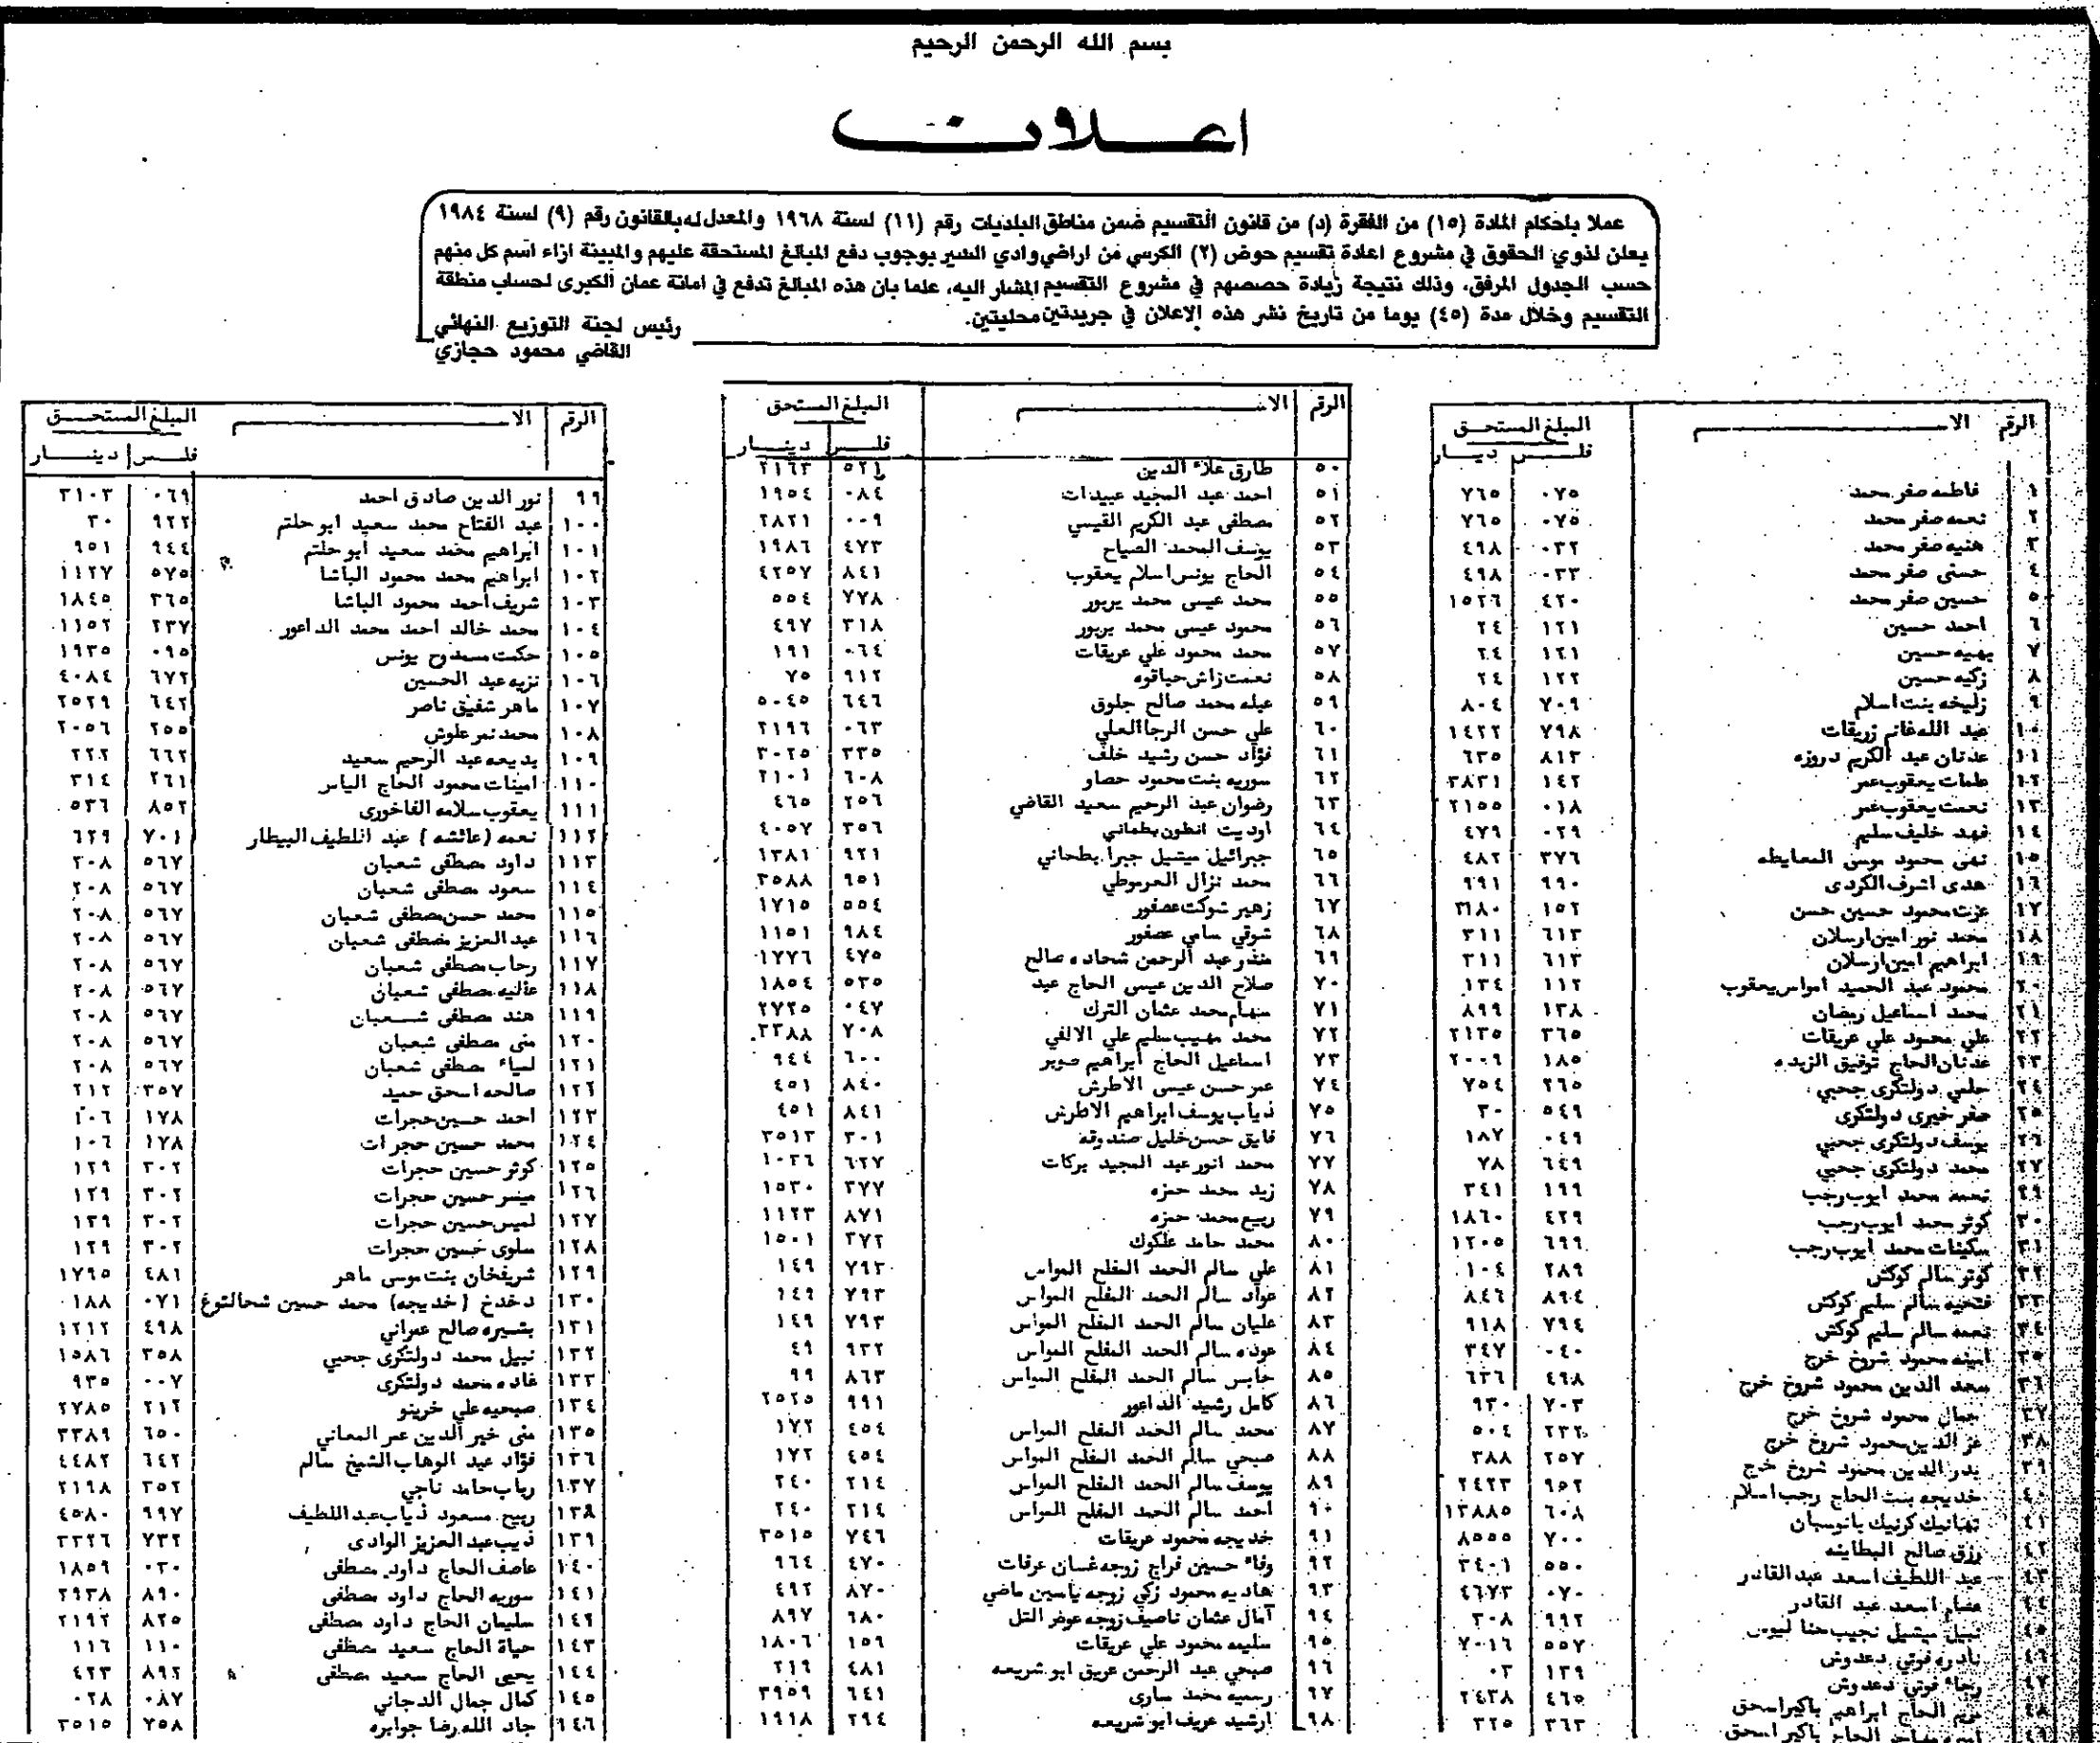 بسم الله الرحمن الرحيم
اعلان
عملا باحكام المادة (١٥) من الفقرة (د) من قانون التقسيم ضمن مناطق البلديات رقم (١١) لسنة ١٩٦٨ والمعدل له بالقانون رقم (٩) لسنة ١٩٨٤
يعلن لذوي الحقوق في مشروع اعادة تقسيم حوض (٢) الكرسي من اراضي وادي السير بوجوب دفع المبالغ المستحقة عليهم والمبينة ازاء اسم كل منهم
حسب الجدول المرفق، وذلك نتيجة زيادة حصصهم في مشروع التقسيم المشار اليه، علما بان هذه المبالغ تدفع في امانة عمان الكبرى لحساب منطقة
التقسيم وخلال مدة (٤٥) يوما من تاريخ نشر هذه الاعلان في جريدتين محليتين.
رئيس لجنة التوزيع النهائي
القاضي محمود حجازي
الرقم الاسم المبلغ المستحق
فلس دينار
١ فاطمه صقر محمد ٠٧٥ ٧٦٥
٢ نعمه صقر محمد ٠٧٥ ٧٦٥
٣ هنيه صقر محمد ٠٣٢ ٤٩٨
٤ حسني صقر محمد ٠٣٣ ٤٩٨
٥ حسين صقر محمد ٤٢٠ ١٥٢٦
٦ احمد حسين ١٢١ ٢٤
٧ بهيه حسين ١٢١ ٢٤
٨ زكيه حسين ١٢٢ ٢٤
٩ زليخه بنت اسلام ٧٠٩ ٨٠٤
١٠ عبد الله غانم زريقات ٧٩٨ ١٤٢٢
١١ عدنان عبد الكريم دروزه ٨١٣ ٦٣٥
١٢ طمات يعقوب عمر ١٤٢ ٣٨٣١
١٣ نعمت يعقوب عمر ٠١٨ ٢١٥٥
١٤ فهد خليف سليم ٠٢٩ ٤٧٩
١٥ نهى محمود موسى المعايطه ٣٧٦ ٤٨٢
١٦ هدى اشرف الكردى ٩٩٠ ٩٩١
١٧ عزت محمود حسين حسن ١٥٢ ٣١٨٠
١٨ محمد نور امين ارسلان ٦١٣ ٣١١
١٩ ابراهيم امين ارسلان ٦١٣ ٣١١
٢٠ محمود عبد الحميد امواس يعقوب ١١٢ ١٣٤
٢١ محمد اسماعيل رمضان ١٣٨ ٨٩٩
٢٢ علي محمود علي عريقات ٣٦٥ ٢١٣٥
٢٣ عدنان الحاج توفيق الزبده ١٨٥ ٢٠٠٩
٢٤ حلمي دولتكرى جحبي ٢٦٥ ٧٥٤
٢٥ صقر خيرى دولتكرى ٥٤٩ ٣٠
٢٦ يوسف دولتكرى جحبي ٠٤٩ ١٨٧
٢٧ محمد دولتكرى جحبي ٦٤٩ ٧٨
٢٩ نعمه محمد ايوب رجب ١٩٩ ٣٤١
٣٠ كوثر محمد ايوب رجب ٤٢٩ ١٨٦٠
٣١ سكينات محمد ايوب رجب ٦٩٩ ١٢٠٥
٣٢ كوثر سالم كوكش ٢٨٩ ١٠٤
٣٣ فتحيه سالم سليم كوكش ٨٩٤ ٨٤٦
٣٤ نعمه سالم سليم كوكش ٧٩٤ ٩١٨
٣٥ امينه محمود شروخ خرج ٠٤٠ ٣٤٧
٣٦ سعد الدين محمود شروخ خرج ٤٦٨ ٦٣٦
٣٧ جمال محمود شروخ خرج ٧٠٣ ٩٣٠
٣٨ عز الدين محمود شروخ خرج ٢٣٢ ٥٠٤
٣٩ بدر الدين محمود شروخ خرج ٢٥٧ ٣٨٨
٤٠ خديجه بنت الحاج رجب اسلام ٩٥٢ ٢٤٢٣
٤١ تهانيك كرنيك بانوسيان ٦٠٨ ١٣٨٨٥
٤٢ رزق صالح البطاينه ٧٠٠ ٨٥٥٥
٤٣ عبد اللطيف اسعد عبد القادر ٥٥٠ ٣٤٠١
٤٤ عصام اسعد عبد القادر ٠٧٠ ٤٦٧٣
٤٥ نبيل ميشيل نجيب حنا ٩٩٢ ٣٠٨
٤٦ نادره فوتي دعدوش ٥٥٧ ٧٠١٦
٤٧ رجاء فوتي دعدوش ١٣٩ ٠٣
٤٨ مريم الحاج ابراهيم باكير اسحق ٤٦٥ ٢٤٣٨
٤٩ الحاج باكير اسحق ٣٦٣ ٣٢٥
الرقم الاسم المبلغ المستحق
فلس دينار
٥٠ طارق علاء الدين ٥٢١ ٢١٦٣
٥١ احمد عبد المجيد عبيدات ٠٨٤ ١٩٥٤
٥٢ مصطفى عبد الكريم القيسي ٠٠٩ ٢٨٢١
٥٣ يوسف المحمد الصياح ٤٧٣ ١٩٨٦
٥٤ الحاج يونس اسلام يعقوب ٨٤١ ٤٢٥٧
٥٥ محمد عيسى محمد بربور ٧٧٨ ٥٥٤
٥٦ محمود عيسى محمد بربور ٣١٨ ٤٩٧
٥٧ محمد محمود علي عريقات ٠٦٤ ١٩١
٥٨ نعمت زاش حباقوه ٩١٢ ٧٥
٥٩ عبله محمد صالح جلوق ٦٤٦ ٥٠٤٥
٦٠ علي حسن الرجا العلي ٠٦٣ ٢١٩٦
٦١ فؤاد حسن رشيد خلف ٣٣٥ ٣٠٢٥
٦٢ سوريه بنت محمود حصاو ٦٠٨ ٢١٠١
٦٣ رضوان عبد الرحيم سعيد القاضي ٢٥٦ ٤٦٥
٦٤ اوديت انطون بطحاني ٣٥٦ ٤٠٥٧
٦٥ جبرائيل ميشيل جبرا بطحاني ٩٢١ ١٣٨١
٦٦ محمد نزال العرموطي ٩٥١ ٣٥٨٨
٦٧ زهير شوكت عصفور ٥٥٤ ١٧١٥
٦٨ شوقي سامي عصفور ٩٨٤ ١١٥١
٦٩ منذر عبد الرحمن شحاده صالح ٤٧٥ ١٧٧٦
٧٠ صلاح الدين عيسى الحاج عبد ٥٣٥ ١٨٥٤
٧١ سهام محمد عثمان الترك ٠٤٧ ٢٧٢٥
٧٢ محمد مهيب سليم علي الالفي ٧٠٨ ٢٣٨٨
٧٣ اسماعيل الحاج ابراهيم صوبر ٦٠٠ ٩٤٤
٧٤ عمر حسن عيسى الاطرش ٨٤٠ ٤٥١
٧٥ ذياب يوسف ابراهيم الاطرش ٨٤١ ٤٥١
٧٦ فايق حسن خليل صندوقه ٣٠١ ٣٥١٣
٧٧ محمد انور عبد المجيد بركات ٦٢٧ ١٠٢٦
٧٨ زيد محمد حمزه ٢٧٧ ١٥٣٠
٧٩ ربيع محمد حمزه ٨٧١ ١١٢٣
٨٠ محمد حامد علكوك ٢٧٢ ١٥٠١
٨١ علي سالم الحمد المفلح المواس ٧٩٣ ١٤٩
٨٢ عواد سالم الحمد المفلح المواس ٧٩٣ ١٤٩
٨٣ عليان سالم الحمد المفلح المواس ٧٩٣ ١٤٩
٨٤ عوده سالم الحمد المفلح المواس ٩٣٢ ٤٩
٨٥ حابس سالم الحمد المفلح المواس ٨٦٣ ٩٩
٨٦ كامل رشيد الداعور ٩٩١ ٢٥٢٥
٨٧ محمد سالم الحمد المفلح المواس ٤٥٤ ١٧٢
٨٨ صبحي سالم الحمد المفلح المواس ٤٥٤ ١٧٢
٨٩ يوسف سالم الحمد المفلح المواس ٢١٤ ٢٤٠
٩٠ احمد سالم الحمد المفلح المواس ٢١٤ ٢٤٠
٩١ خديجه محمود عريقات ٧٤٦ ٣٥١٥
٩٢ وفاء حسين فراج زوجه غسان عرفات ٤٧٠ ٩٦٤
٩٣ هاديه محمود زكي زوجه ياسين ماضي ٨٧٠ ٤٩٢
٩٤ آمال عثمان ناصيف زوجه عوض التل ٦٨٠ ٨٩٧
٩٥ سليمه محمود علي عريقات ١٥٩ ١٨٠٦
٩٦ صبحي عبد الرحمن عريق ابو شريعه ٤٨١ ٢١٩
٩٧ رسميه محمد سارى ٦٤١ ٣٩٥٩
٩٨ ارشيد عريف ابو شريعه ٢٩٤ ١٩١٨
الرقم الاسم المبلغ المستحق
فلس دينار
٩٩ نور الدين صادق احمد ٠٦٩ ٣١٠٣
١٠٠ عبد الفتاح محمد سعيد ابو حلتم ٩٢٢ ٣٠
١٠١ ابراهيم محمد سعيد ابو حلتم ٩٤٤ ٩٥١
١٠٢ ابراهيم محمد محمود الباشا ٥٧٥ ١١٢٧
١٠٣ شريف احمد محمود الباشا ٣٦٥ ١٨٤٥
١٠٤ محمد خالد احمد محمد الداعور ٢٣٧ ١١٥٢
١٠٥ حكمت ممدوح يونس ٠٩٥ ١٩٣٥
١٠٦ نزيه عبد الحسين ٦٧٢ ٤٠٨٤
١٠٧ ماهر شفيق ناصر ٦٤٢ ٢٥٢٩
١٠٨ محمد نمر علوش ٢٥٥ ٢٠٥٦
١٠٩ بديعه عبد الرحيم سعيد ٦٦٢ ٢٢٢
١١٠ امينات محمود الحاج الياس ٢٦١ ٣١٤
١١١ يعقوب سلامه الفاخورى ٨٥٢ ٥٣٦
١١٢ نعمه (عائشه) عبد اللطيف البيطار ٧٠١ ٦٢٩
١١٣ داود مصطفى شعبان ٥٦٧ ٢٠٨
١١٤ سعود مصطفى شعبان ٥٦٧ ٢٠٨
١١٥ محمد حسن مصطفى شعبان ٥٦٧ ٢٠٨
١١٦ عبد العزيز مصطفى شعبان ٥٦٧ ٢٠٨
١١٧ رحاب مصطفى شعبان ٥٦٧ ٢٠٨
١١٨ عاليه مصطفى شعبان ٥٦٧ ٢٠٨
١١٩ هند مصطفى شعبان ٥٦٧ ٢٠٨
١٢٠ منى مصطفى شعبان ٥٦٧ ٢٠٨
١٢١ لمياء مصطفى شعبان ٥٦٧ ٢٠٨
١٢٢ صالحه اسحق حميد ٣٥٧ ٢١٢
١٢٣ احمد حسين حجرات ١٧٨ ١٠٦
١٢٤ محمد حسين حجرات ١٧٨ ١٠٦
١٢٥ كوثر حسين حجرات ٣٠٢ ١٢٩
١٢٦ ميسر حسين حجرات ٣٠٢ ١٢٩
١٢٧ لميس حسين حجرات ٣٠٢ ١٣٩
١٢٨ سلوى حسين حجرات ٣٠٢ ١٢٩
١٢٩ شريفخان بنت موسى ماهر ٤٨١ ١٧٩٥
١٣٠ دخدخ (خديجه) محمد حسين شحالتوغ ٠٧١ ١٨٨
١٣١ بشيره صالح عمراني ٤٩٨ ١٢١٢
١٣٢ نبيل محمد دولتكرى جحبي ٣٥٨ ١٥٨٦
١٣٣ غاده محمد دولتكرى ٠٠٧ ٩٣٥
١٣٤ صبحيه علي خرينو ٢١٢ ٢٧٨٥
١٣٥ منى خير الدين عمر المعاني ٦٥٠ ٣٣٨٩
١٣٦ فؤاد عبد الوهاب الشيخ سالم ٦٤٢ ٤٤٨٢
١٣٧ رباب حامد ناجي ٣٥٢ ٢١٩٨
١٣٨ ربيح مسعود ذياب عبد اللطيف ٩٩٧ ٤٥٨٠
١٣٩ ذيب عبد العزيز الوادى ٧٣٢ ٣٣٢٦
١٤٠ عاصف الحاج داود مصطفى ٠٣٠ ١٨٥٩
١٤١ سوريه الحاج داود مصطفى ٨٩٠ ٢٩٣٨
١٤٢ سليمان الحاج داود مصطفى ٨٢٥ ٢١٩٢
١٤٣ حياة الحاج سعيد مصطفى ١١٠ ١١٦
١٤٤ يحيى الحاج سعيد مصطفى ٨٩٢ ٤٢٣
١٤٥ كمال جمال الدجاني ٠٨٧ ٠٢٨
١٤٦ جاد الله رضا جوابره ٧٥٨ ٣٥١٥